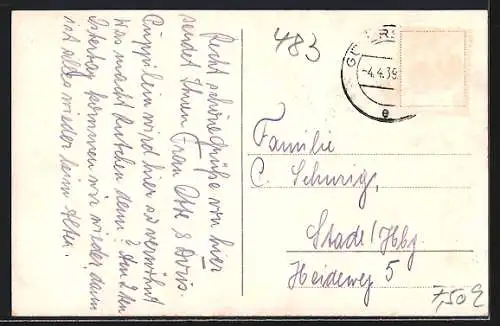 Recht schöne Grüße von hier
sendet Ihnen Frau Otte & Doris.
Püppilein wird hier so verwöhnt
Was macht Lutchen denn? Am 2ten
Ostertag kommen wir wieder dann
ist alles wieder beim Alten.
483
-4.4.39.
e
Familie
C. Schurig,
Stade/Hbg
Heideweg 5
7,50 €